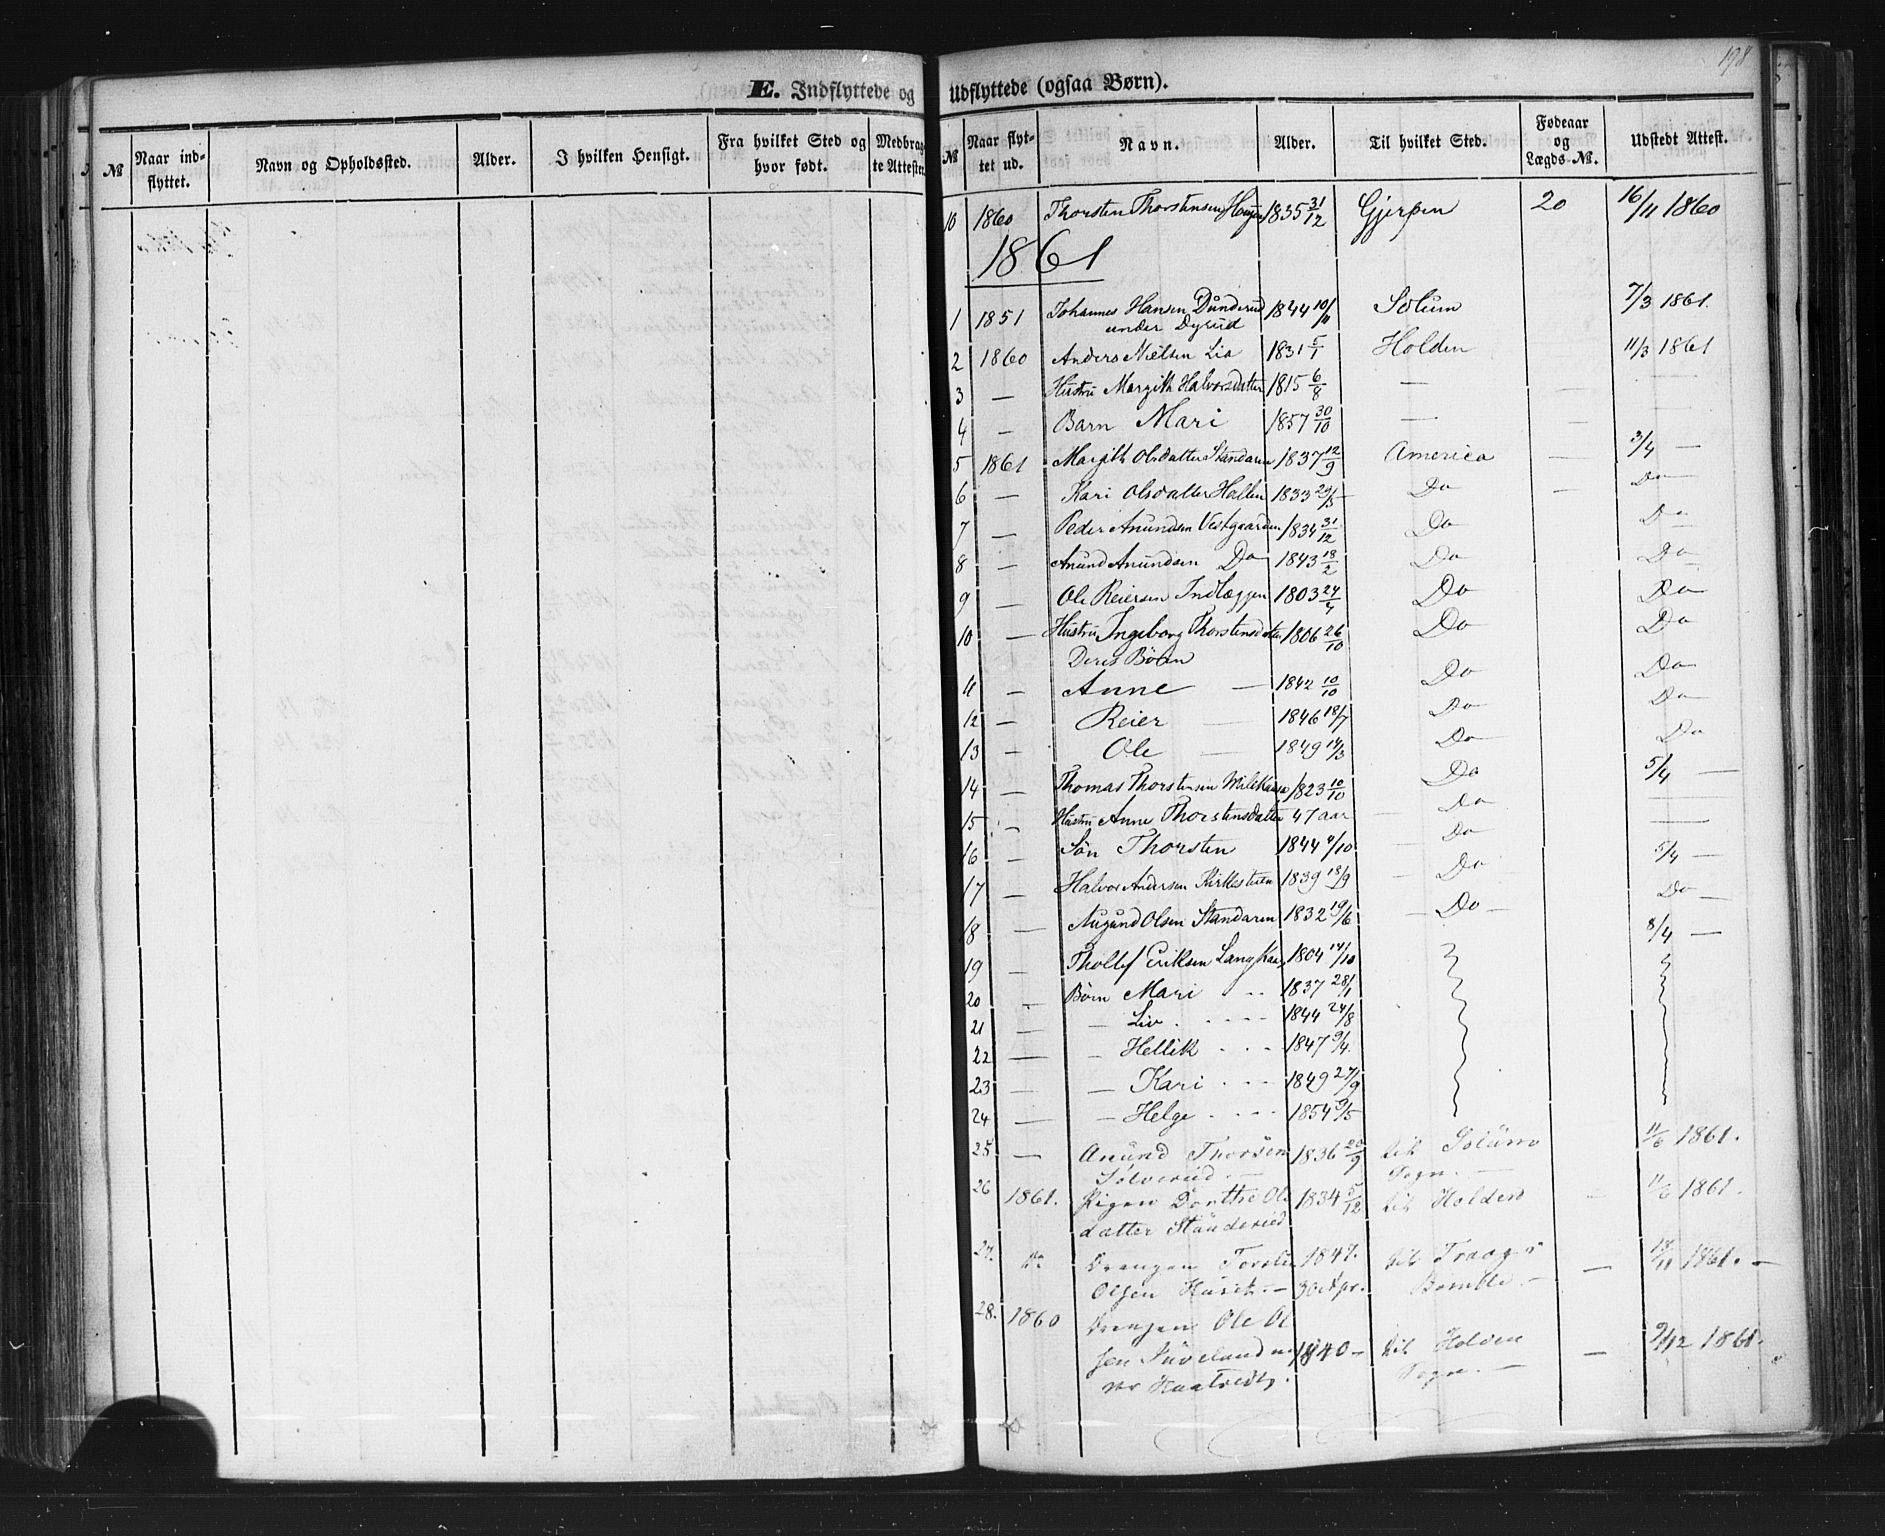 198
E. Indflyttede og Udflyttede (ogsaa Børn).
№ | Naar indflyttet. | Navn og Opholdssted. | Alder. | I hvilken Hensigt. | Fra hvilket Sted og hvor født. | Medbragte Attester.
№ | Naar flyttet ud. | Navn. | Alder. | Til hvilket Sted. | Fødeaar og Lægds-№. | Udstedt Attest.
10 1860 Thorsten Thorstensen 1835 31/12 Gjerpen 20 16/11 1860
1861
1 1851 Johannes Hansen Dunderud 1844 10/11 Solum 7/3 1861.
under Dyrud
2 1860 Anders Nielsen Lia 1831 5/1 Holden 11/3 1861
3 — Hustru Margith Halvorsdatter 1815 6/8 —
4 — Barn Mari 1857 30/10 — —
5 1861 Margith Olsdatter Standaren 1837 12/9 America — 3/4 —
6 — Kari Olsdatter Hallen 1833 29/5 Do — Do
7 — Peder Anundsen Vestgaarden 1834 31/12 Do Do
8 — Anund Anundsen Do 1843 18/2 Do Do
9 — Ole Reiersen Indlæggen 1803 24/4 Do Do
10 — Hustru Ingeborg Thorstensdatter 1806 26/10 Do Do
Deres Børn
11 — Anne — 1842 10/10 Do Do
12 — Reier — 1846 18/7 Do Do
13 — Ole — 1849 14/3 Do Do
14 — Thomas Thorstensen 1823 10/10 Do 5/4 —
15 — Hustru Anne Thorstensdatter 47 aar — Do —
16 — Søn Thorsten 1844 /10 Do 5/4 —
17 — Halvor Andersen Kirkestuen 1839 18/9 — Do Do —
18 — Augund Olsen Standaren 1832 19/6 — Do — 8/4 —
19 — Thollef Eriksen 1804 14/10
20 — Børn Mari 1837 28/1
21 — — Liv 1844 24/8
22 — — Hellik 1847 9/4.
23 — — Kari 1849 27/9
24 — — Helge 1854 9/5
25 — Anund Thorsen 1836 20/9 til Solum 11/6 1861.
Sølverud — Sogn. —
26 1861. Pigen Dorthe Ols 1834 5/12 til Holden — 11/6 1861.
datter
27. Do Drengen 1847. til — 18/11 1861. —
Olsen Huset. — 30 Apr. Bamble. —
28. 1860 Drengen Ole Ol
sen 1840 — til Holden — 9/12 1861.
Sogn. —